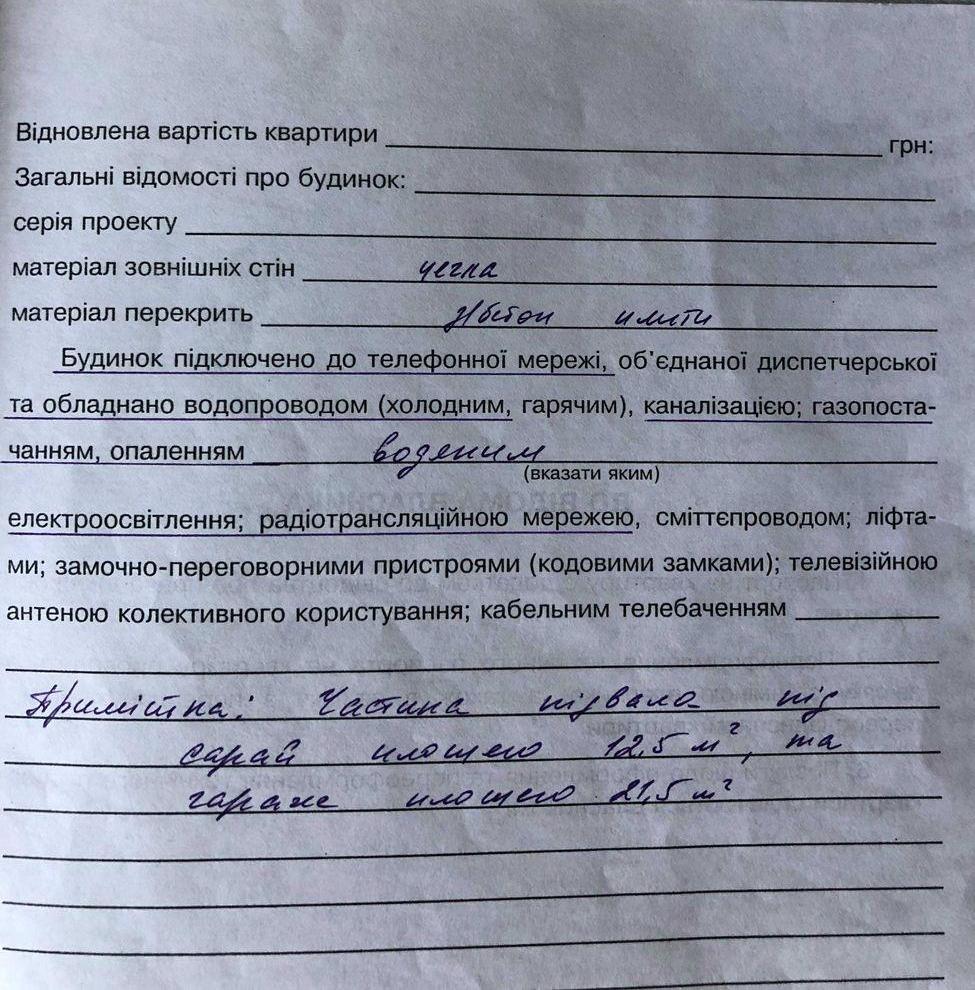 Відновлена вартість квартири ____ грн:
Загальні відомості про будинок:
серія проекту
матеріал зовнішніх стін цегла
матеріал перекрить з/бетон плити
Будинок підключено до телефонної мережі, об'єднаної диспетчерської
та обладнано водопроводом (холодним, гарячим), каналізацією; газопоста-
чанням, опаленням водяним
(вказати яким)
електроосвітлення; радіотрансляційною мережею, сміттєпроводом; ліфта-
ми; замочно-переговорними пристроями (кодовими замками); телевізійною
антеною колективного користування; кабельним телебаченням
Примітка: Частина підвала під
сарай площею 12,5 м², та
гараж площею 21,5 м²